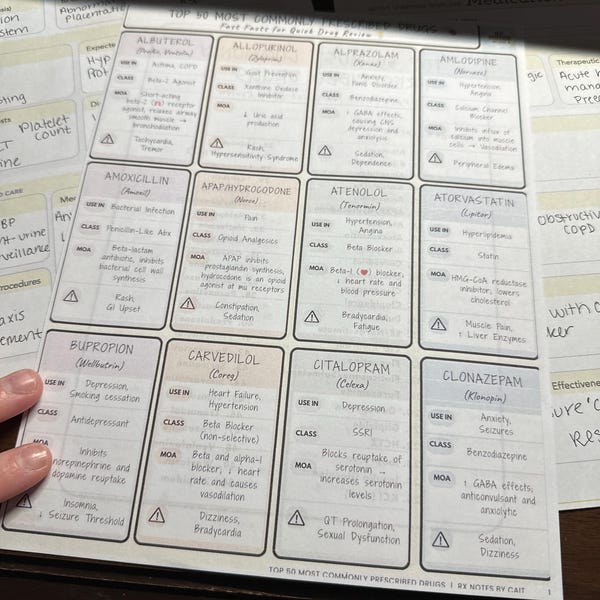 TOP 50 MOST COMMONLY PRESCRIBED DRUGS
Fast Facts for Quick Drug Review
ALBUTEROL
(Proair, Ventolin)
USE IN Asthma, COPD
CLASS Beta-2 Agonist
MOA Short-acting
beta-2 receptor
agonist, relaxes airway
smooth muscle →
bronchodilation
Tachycardia,
Tremor
ALLOPURINOL
(Zyloprim)
USE IN Gout Prevention
CLASS Xanthine Oxidase
Inhibitor
MOA
↓ Uric acid
production
Rash,
Hypersensitivity Syndrome
ALPRAZOLAM
(Xanax)
USE IN Anxiety,
Panic Disorder
CLASS Benzodiazepine
MOA ↑ GABA effects,
causing CNS
depression and
anxiolysis
Sedation,
Dependence
AMLODIPINE
(Norvasc)
USE IN Hypertension,
Angina
CLASS Calcium Channel
Blocker
MOA Inhibits influx of
calcium into muscle
cells → Vasodilation
Peripheral Edema
AMOXICILLIN
(Amoxil)
USE IN Bacterial Infection
CLASS Penicillin-Like Abx
MOA Beta-lactam
antibiotic, inhibits
bacterial cell wall
synthesis
Rash,
GI Upset
APAP/HYDROCODONE
(Norco)
USE IN Pain
CLASS Opioid Analgesics
MOA APAP inhibits
prostaglandin synthesis,
hydrocodone is an opioid
agonist at mu receptors
Constipation,
Sedation
ATENOLOL
(Tenormin)
USE IN Hypertension,
Angina
CLASS Beta Blocker
MOA Beta-1 (❤️) blocker;
↓ heart rate and
blood pressure
Bradycardia,
Fatigue
ATORVASTATIN
(Lipitor)
USE IN Hyperlipidemia
CLASS Statin
MOA HMG-CoA reductase
inhibitor; lowers
cholesterol
Muscle Pain,
↑ Liver Enzymes
BUPROPION
(Wellbutrin)
USE IN Depression,
Smoking cessation
CLASS Antidepressant
MOA Inhibits
norepinephrine and
dopamine reuptake
Insomnia,
↓ Seizure Threshold
CARVEDILOL
(Coreg)
USE IN Heart Failure,
Hypertension
CLASS Beta Blocker
(non-selective)
MOA Beta and alpha-1
blocker; ↓ heart
rate and causes
vasodilation
Dizziness,
Bradycardia
CITALOPRAM
(Celexa)
USE IN Depression
CLASS SSRI
MOA Blocks reuptake of
serotonin →
increases serotonin
levels
QT Prolongation,
Sexual Dysfunction
CLONAZEPAM
(Klonopin)
USE IN Anxiety,
Seizures
CLASS Benzodiazepine
MOA ↑ GABA effects;
anticonvulsant and
anxiolytic
Sedation,
Dizziness
TOP 50 MOST COMMONLY PRESCRIBED DRUGS | RX NOTES BY CAIT 1
Platelet
count
Therapeutic
Acute
COPD
Effectivene